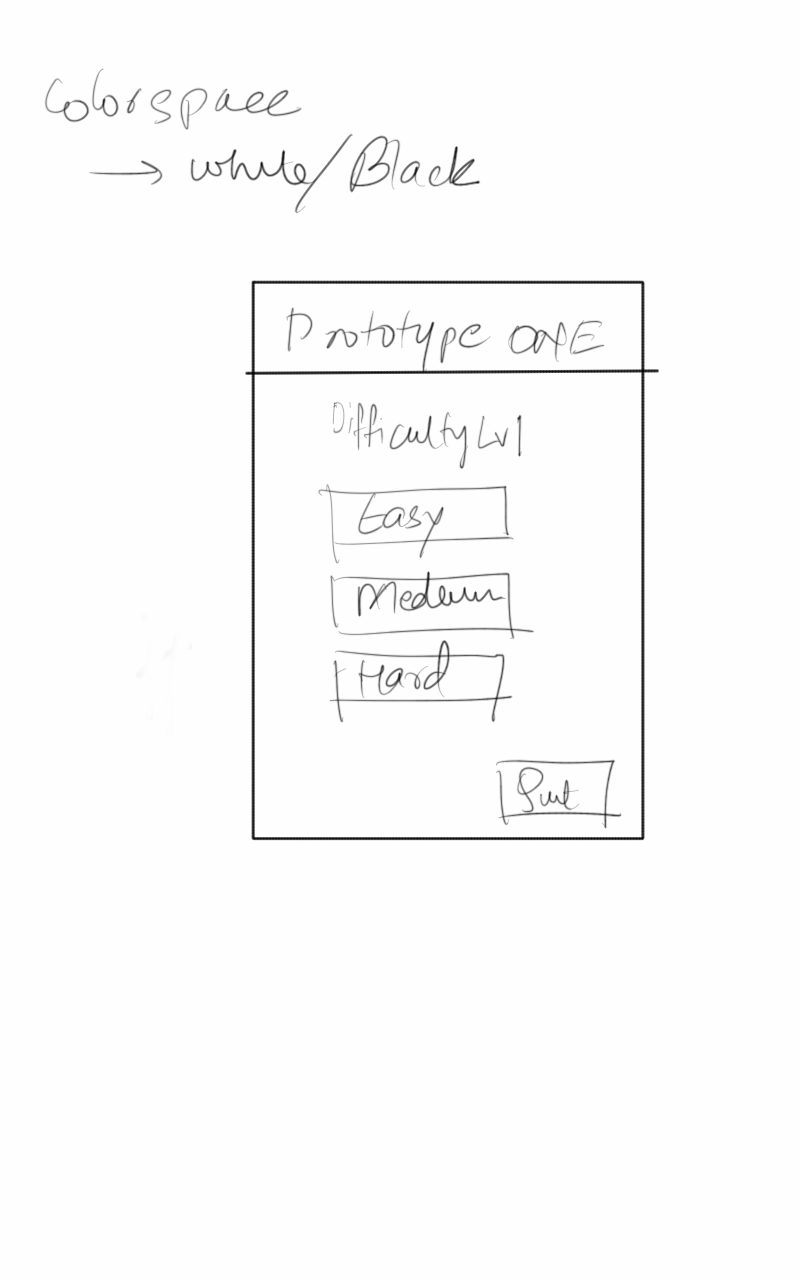 Colorspace
→ white/Black
Prototype ONE
Difficulty Lvl
Easy
Medium
Hard
Quit